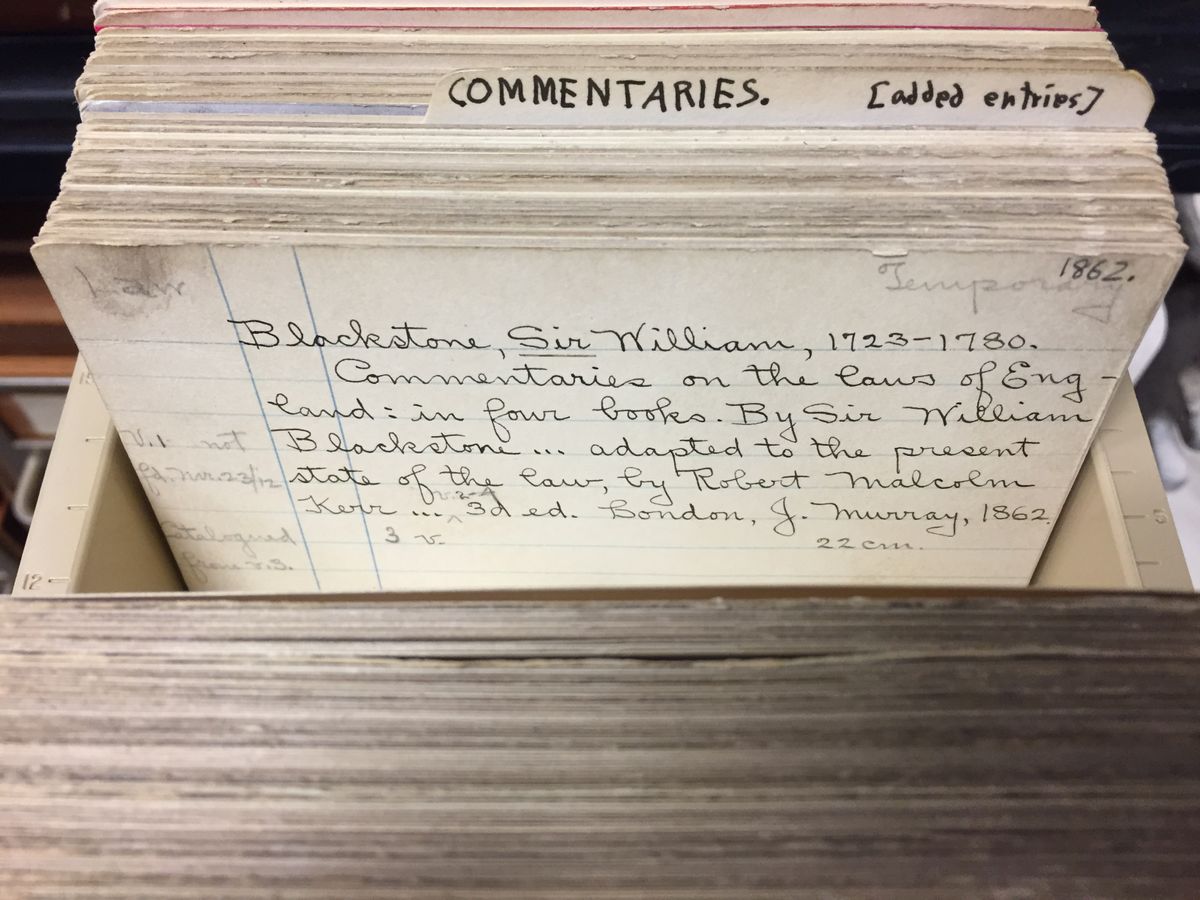 COMMENTARIES. [added entries]
Law
Temporary
1862.
Blackstone, Sir William, 1723-1780.
Commentaries on the laws of Eng-
land: in four books. By Sir William
Blackstone ... adapted to the present
state of the law, by Robert Malcolm
v.2-4
Kerr ... ^ 3d ed. London, J. Murray, 1862.
3 v. 22 cm.
V.1 not
fd. Mr. 23/12
Catalogued
from v.3.
12